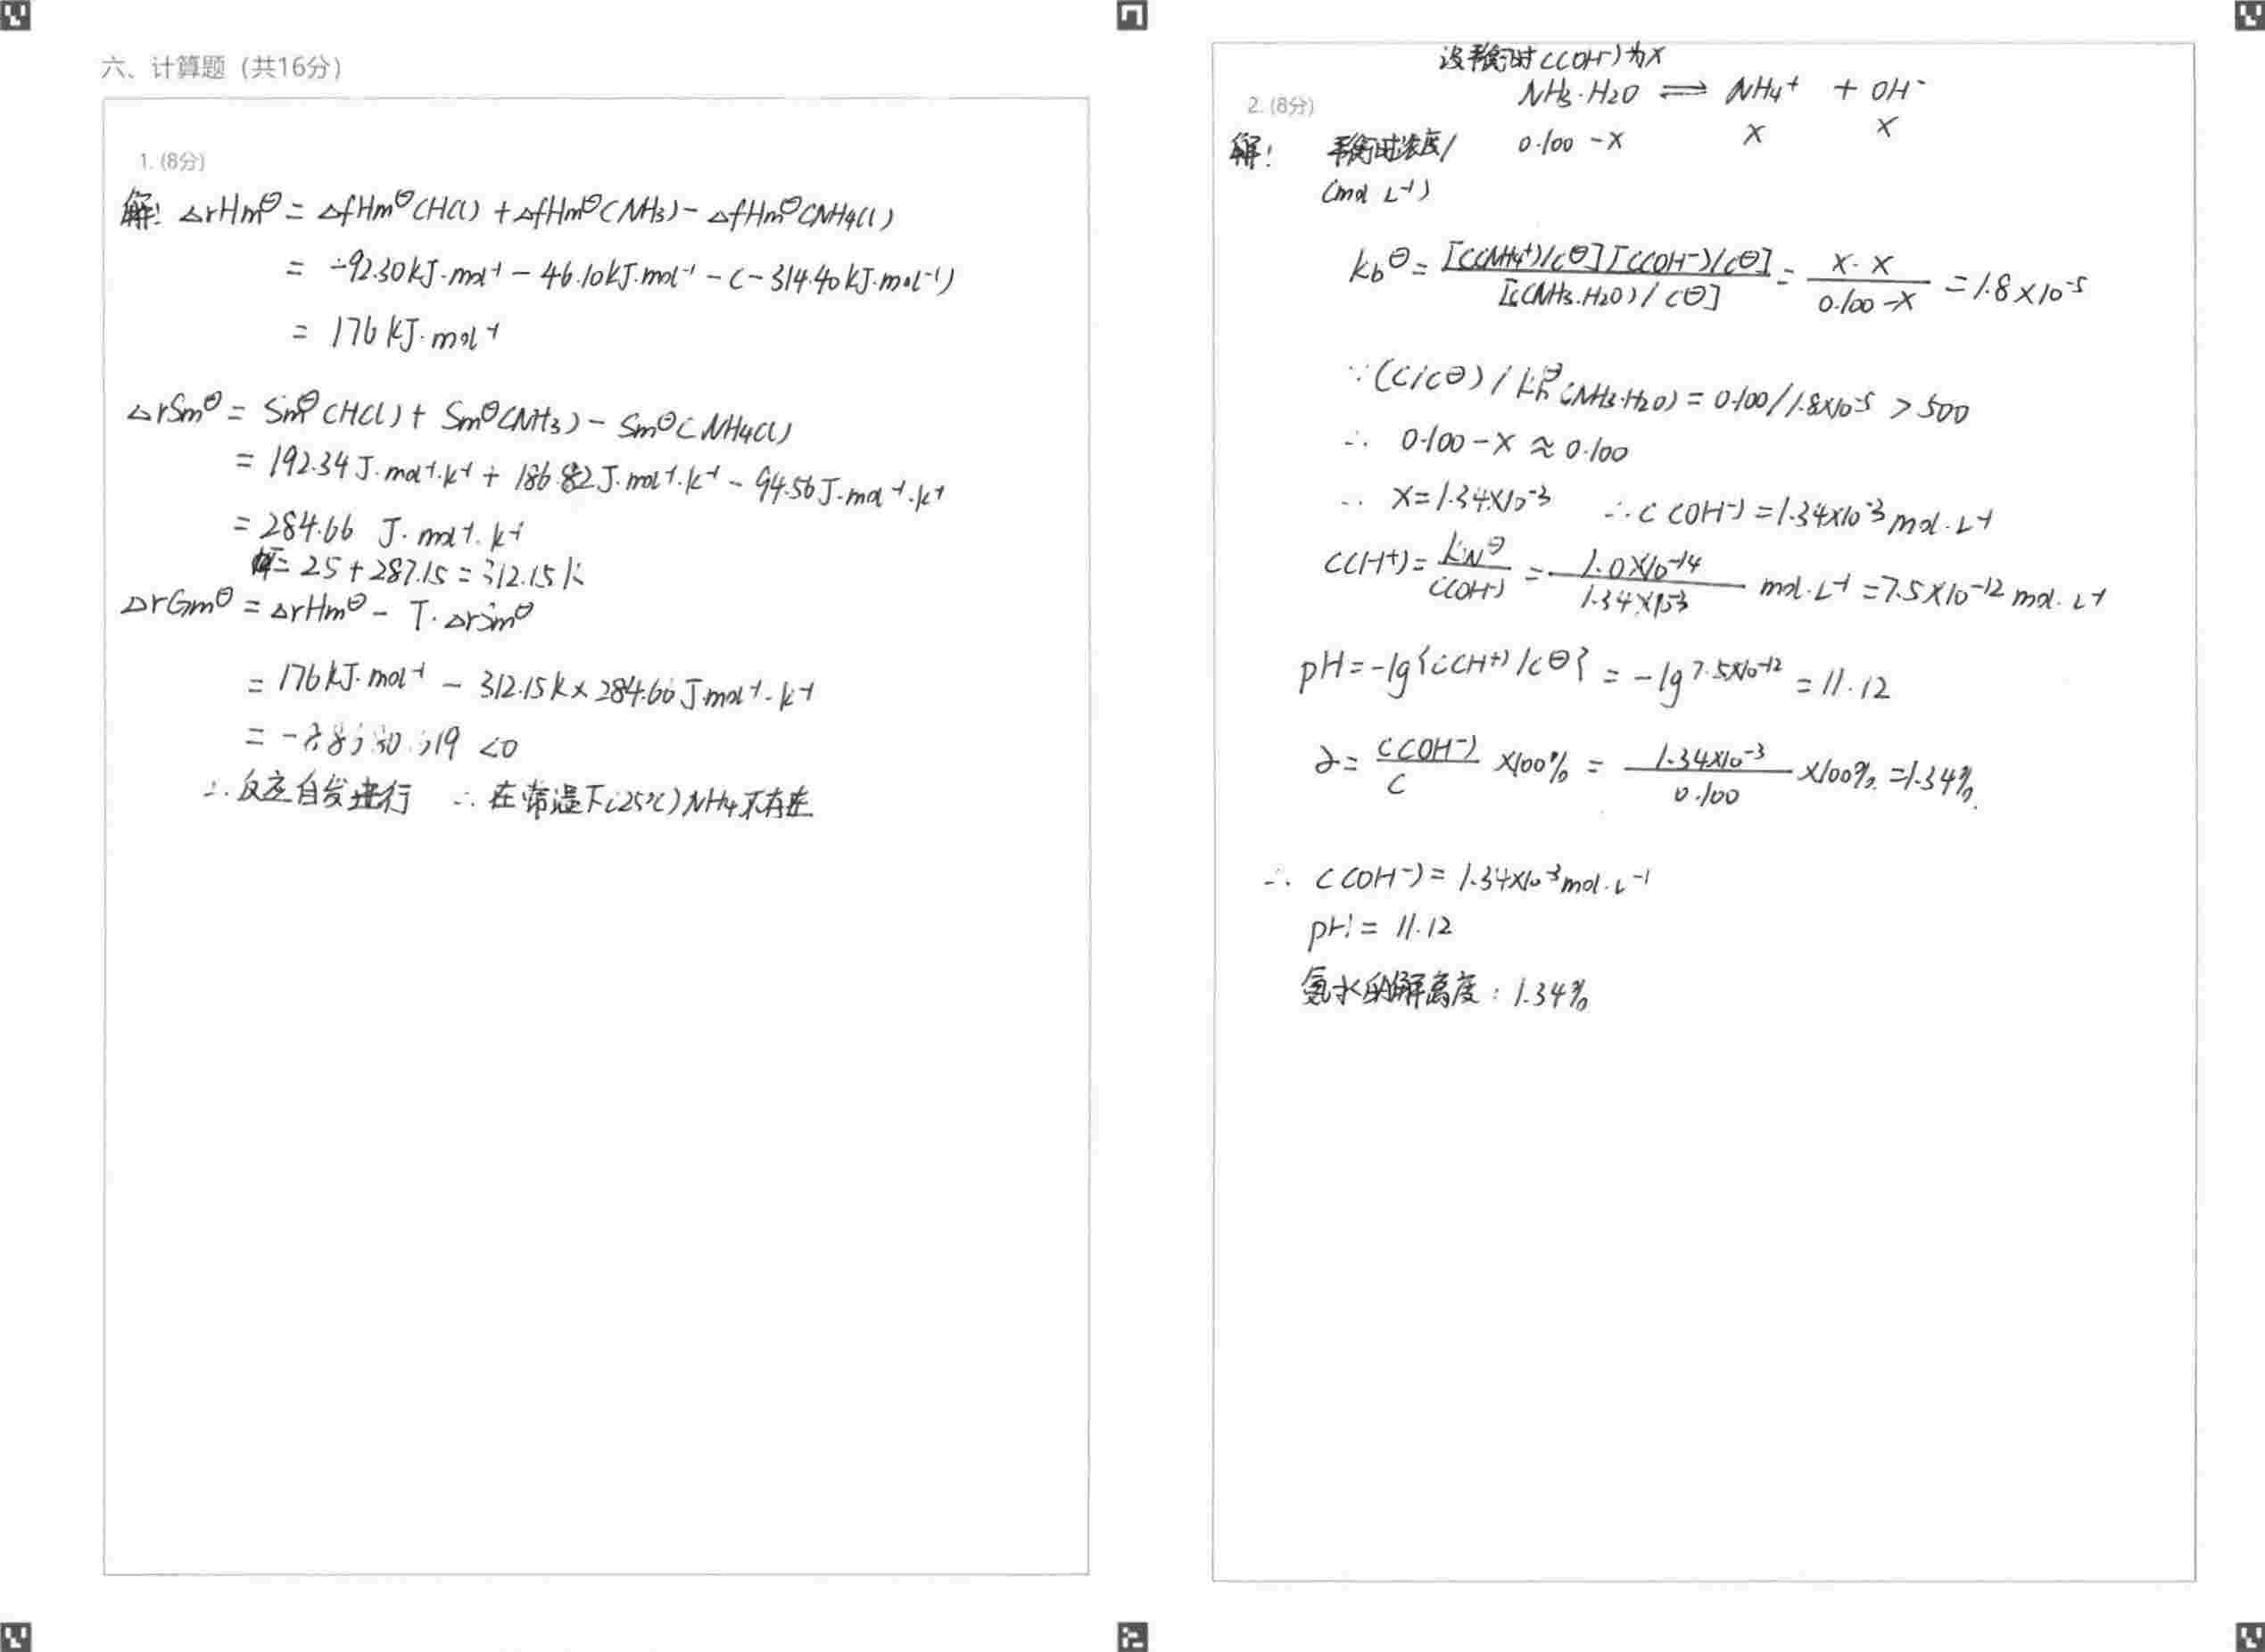 六、计算题 (共16分)
1. (8分)
解: △rHm⊖ = △fHm⊖(HCl) + △fHm⊖(NH3) - △fHm⊖(NH4Cl)
= -92.30kJ·mol⁻¹ - 46.10kJ·mol⁻¹ - (-314.40kJ·mol⁻¹)
= 176 kJ·mol⁻¹
△rSm⊖ = Sm⊖(HCl) + Sm⊖(NH3) - Sm⊖(NH4Cl)
= 192.34 J·mol⁻¹·k⁻¹ + 186.82 J·mol⁻¹·k⁻¹ - 94.56 J·mol⁻¹·k⁻¹
= 284.66 J·mol⁻¹·k⁻¹
= 25 + 287.15 = 312.15 k
△rGm⊖ = △rHm⊖ - T·△rSm⊖
= 176kJ·mol⁻¹ - 312.15k × 284.66 J·mol⁻¹·k⁻¹
<0
∴反应自发进行 ∴在常温下(25℃)NH4不存在
设平衡时c(OH⁻)为x
2. (8分)
NH3·H2O ⇌ NH4⁺ + OH⁻
解: 平衡时浓度/ 0.100 - x x x
(mol L⁻¹)
kb⊖ = [c(NH4⁺)/c⊖][c(OH⁻)/c⊖] / [c(NH3·H2O)/c⊖] = x·x / 0.100-x = 1.8×10⁻⁵
∵ (c/c⊖) / kb⊖(NH3·H2O) = 0.100/1.8×10⁻⁵ > 500
∴ 0.100 - x ≈ 0.100
∴ x = 1.34×10⁻³ ∴ c(OH⁻) = 1.34×10⁻³ mol·L⁻¹
c(H⁺) = kw⊖ / c(OH⁻) = 1.0×10⁻¹⁴ / 1.34×10⁻³ mol·L⁻¹ = 7.5×10⁻¹² mol·L⁻¹
pH = -lg{c(H⁺)/c⊖} = -lg 7.5×10⁻¹² = 11.12
∂ = c(OH⁻) / c ×100% = 1.34×10⁻³ / 0.100 ×100% = 1.34%.
∴ c(OH⁻) = 1.34×10⁻³ mol·L⁻¹
pH = 11.12
氨水的解离度: 1.34%